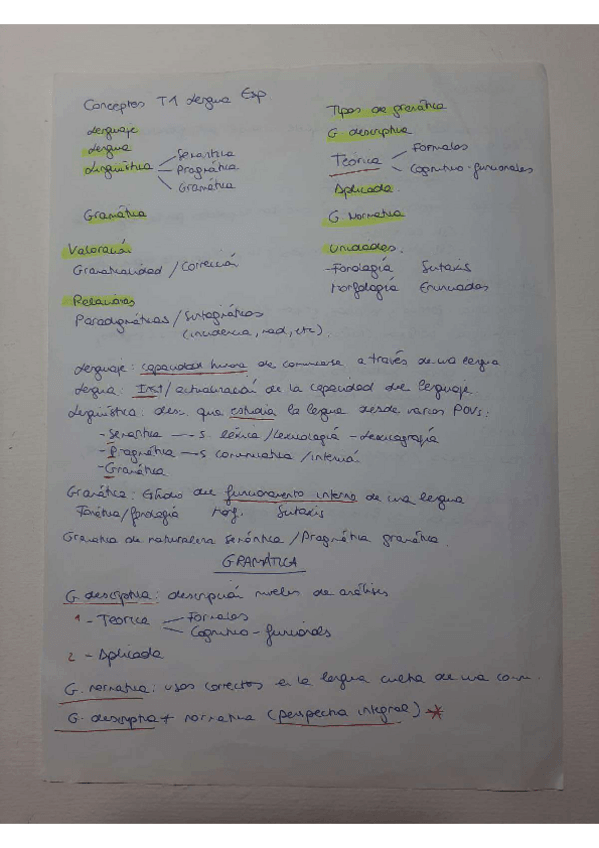 Conceptos T1 Lengua Esp
Lenguaje
Lengua
Lingüística
Semántica
Pragmática
Gramática
Gramática
Valoración
Gramaticalidad / Corrección
Relaciones
Paradigmáticas / Sintagmáticas
(incidencia, , etc).
Tipos de gramática
G. descriptiva
Teórica
Formales
Cognitivo-funcionales
Aplicada
G Normativa
Unidades.
-Fonología Sintaxis
Morfología Enunciados
Lenguaje: capacidad humana de comunicarse a través de una lengua
Lengua: Inst/ actualización de la capacidad del lenguaje
Lingüística: desc. que estudia la lengua desde varios POVs:
-Semántica s. léxica / lexicología - lexicografía
-Pragmática s comunicativa /
-Gramática
Gramática: Estudio del funcionamiento interno de una lengua
Fonética/fonología Morf. Sintaxis
Gramática de naturaleza semántica / Pragmática gramática.
GRAMÁTICA
G. descriptiva: descripción niveles de análisis
1 - Teórica
Formales
Cognitivo-funcionales
2 - Aplicada
G. normativa: usos correctos en la lengua culta de una com.
G. descriptiva + normativa (perspectiva integral) *